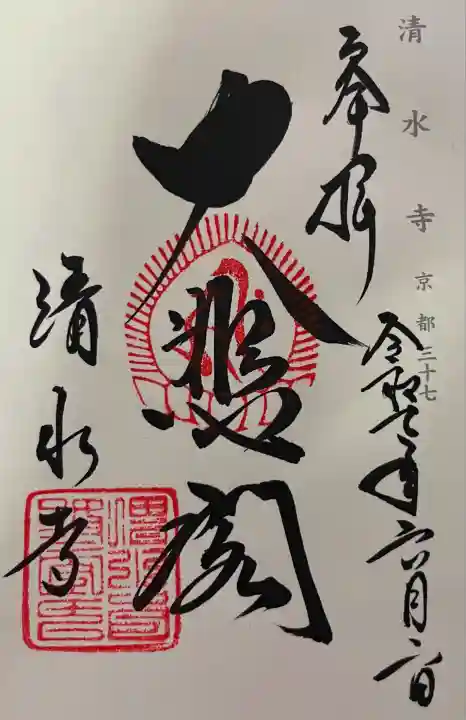 清水寺 京都 三十七
奉拝
令和七年六月二日
大悲閣
清水寺